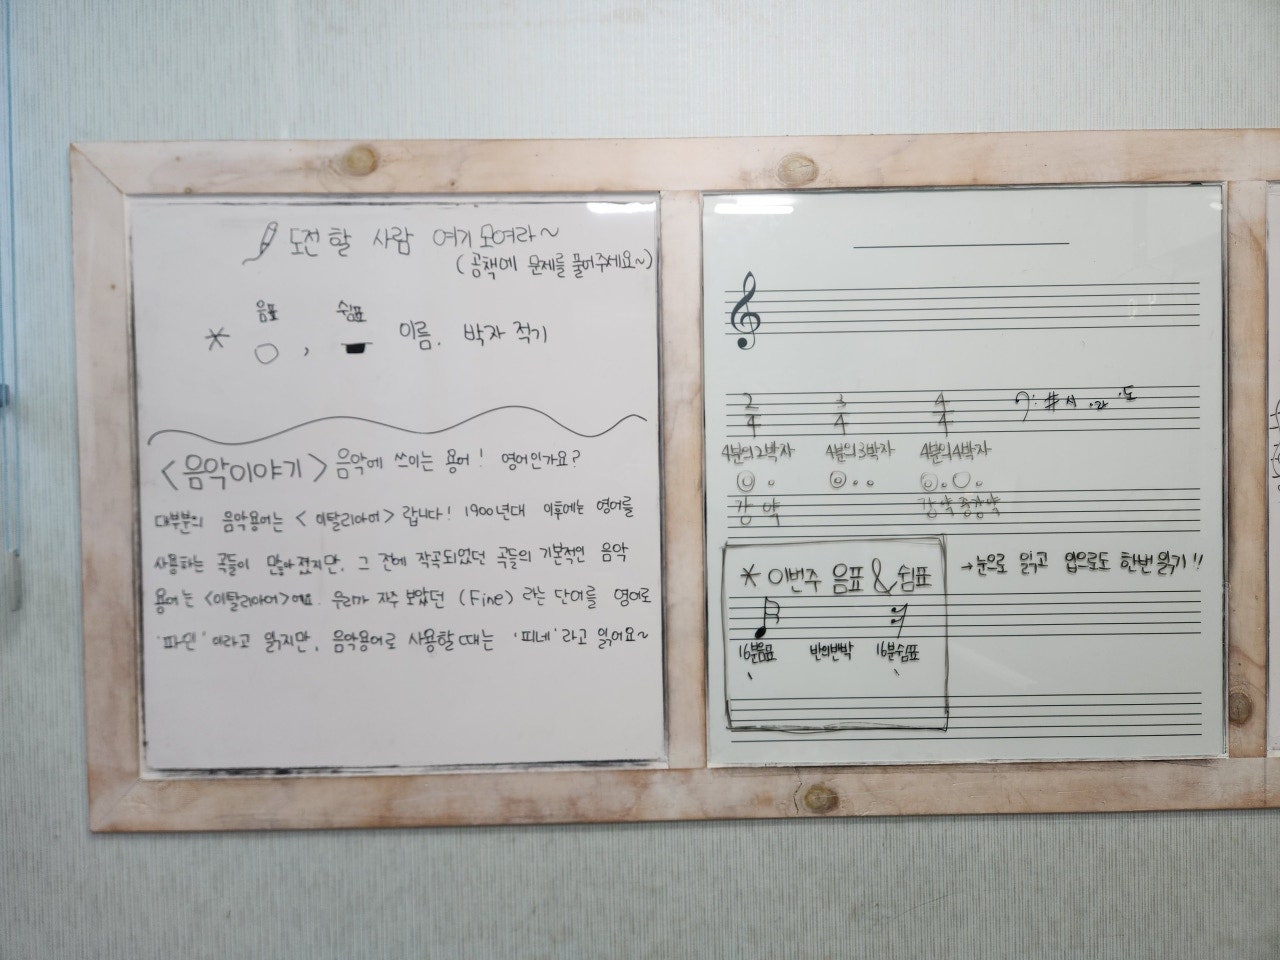 도전 할 사람 여기 모여라~
(공책에 문제를 풀어주세요~)
음표 쉼표
* , 이름. 박자 적기
<음악이야기> 음악에 쓰이는 용어! 영어인가요?
대부분의 음악용어는 <이탈리아어> 랍니다! 1900년대 이후에는 영어를
사용하는 곡들이 많아졌지만, 그 전에 작곡되었던 곡들의 기본적인 음악
용어는 <이탈리아어>에요. 우리가 자주 보았던 (Fine) 라는 단어를 영어로
'파인' 이라고 읽지만, 음악용어로 사용할 때는 '피네' 라고 읽어요~
2/4 3/4 4/4 # 시 라 도
4분의2박자 4분의3박자 4분의4박자
강 약 강 약 중강 약
* 이번주 음표 & 쉼표 → 눈으로 읽고 입으로도 한번 읽기!!
16분음표 반의반박 16분쉼표